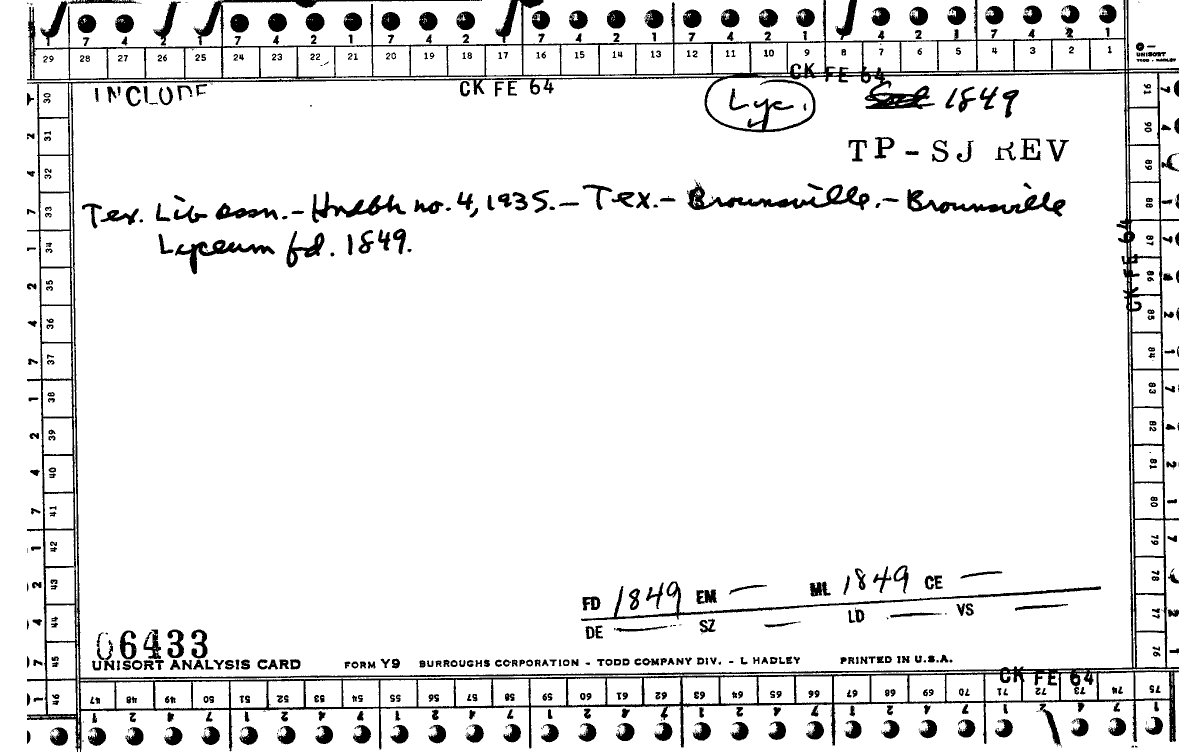 7 4 2 1 7 4 2 1 7 4 2 1 7 4 2 1 7 4 2 1 7 4 2 1 7 4 2 1
29 28 27 26 25 24 23 22 21 20 19 18 17 16 15 14 13 12 11 10 9 8 7 6 5 4 3 2 1
UNISORT
TODD - HADLEY
INCLUDE CK FE 64 CK FE 64
Lyc. 1849
TP-SJ REV
Tex. Lib assn.- Hndbk no. 4, 1935.- Tex.- Brownsville.- Brownsville
Lyceum fd. 1849.
CK FE 64
30 31 32 33 34 35 36 37 38 39 40 41 42 43 44 45 46
91 90 89 88 87 86 85 84 83 82 81 80 79 78 77 76 75
FD 1849 EM — ML 1849 CE —
DE — SZ — LD — VS —
06433
UNISORT ANALYSIS CARD FORM Y9 BURROUGHS CORPORATION - TODD COMPANY DIV. - L HADLEY PRINTED IN U.S.A.
CK FE 64
47 48 49 50 51 52 53 54 55 56 57 58 59 60 61 62 63 64 65 66 67 68 69 70 71 72 73 74 75